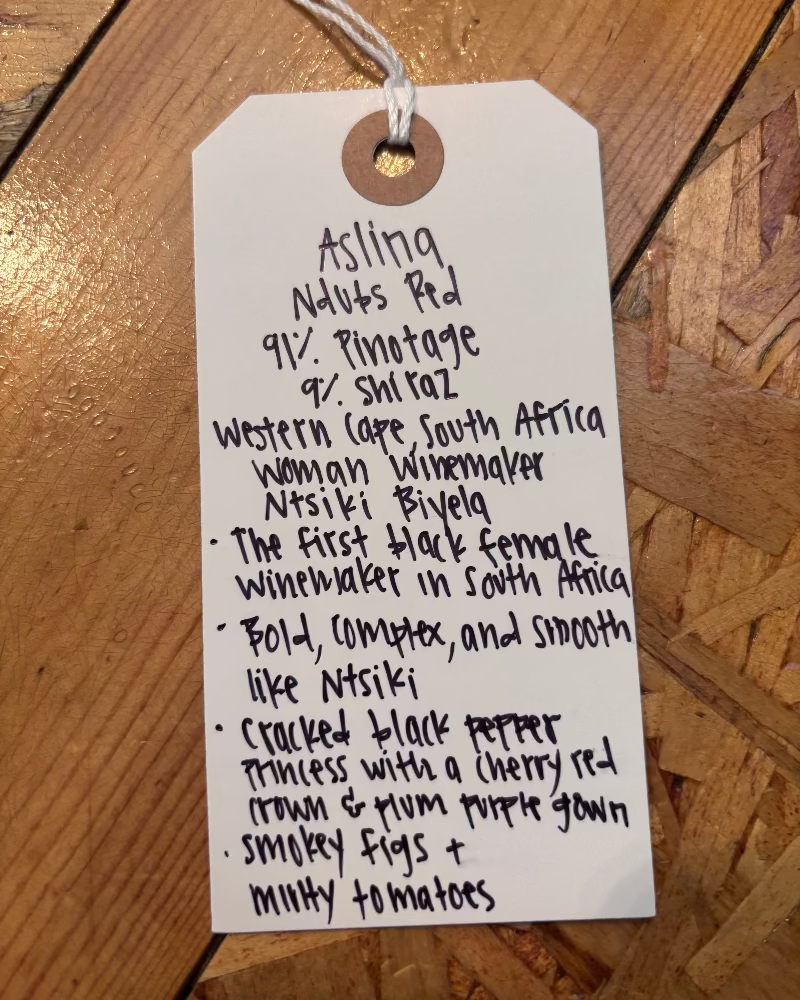 Aslina
Ndubs Red
91% Pinotage
9% Shiraz
Western Cape, South Africa
Woman Winemaker
Ntsiki Biyela
· The first black female
winemaker in South Africa
· Bold, complex, and smooth
like Ntsiki
· Cracked black pepper
princess with a cherry red
crown & plum purple gown
· smokey figs +
minty tomatoes